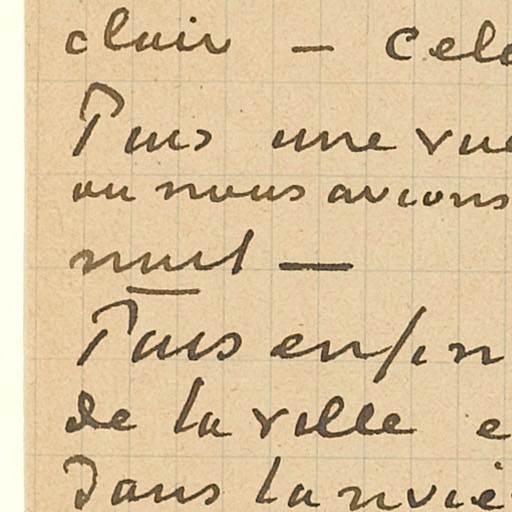 clair — Cele
Puis une vue
ou nous avions
nuit —
Puis enfin
de la ville e
dans la riviè